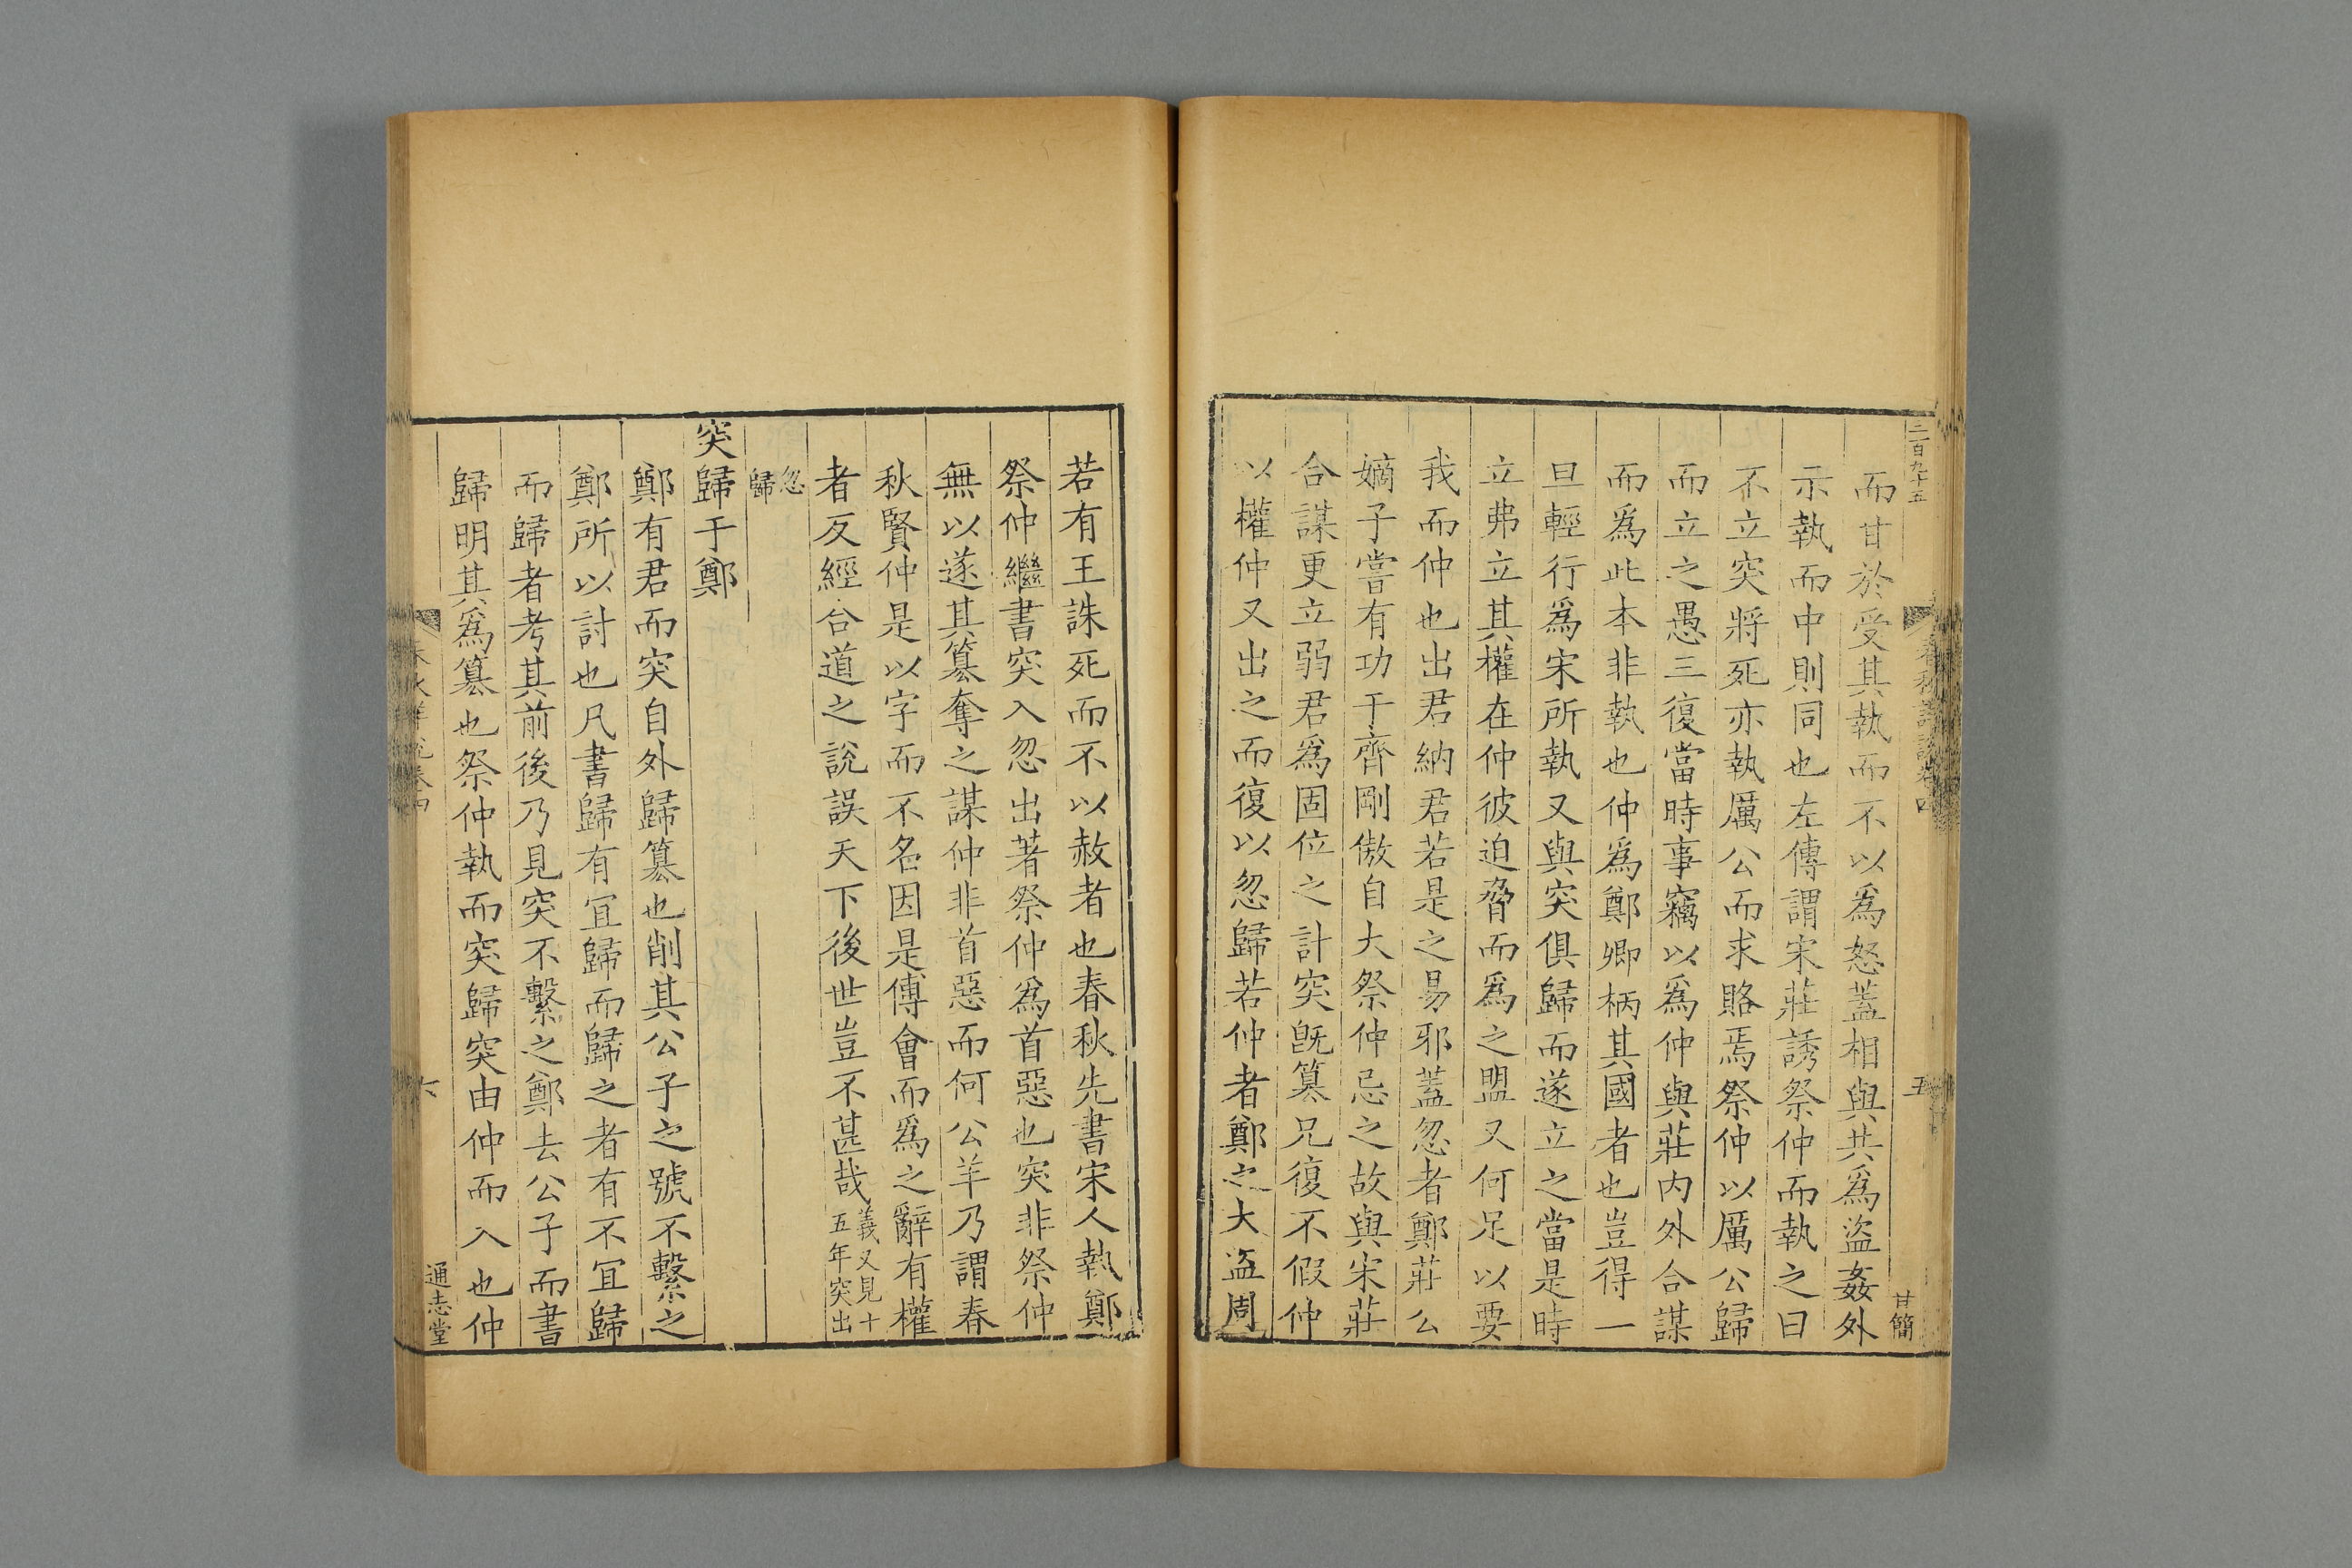 二百九十五
春秋詳說卷四
五
甘簡
而甘於受其執而不以爲怒蓋相與共爲盜姦外
示執而中則同也左傳謂宋莊誘祭仲而執之曰
不立突將死亦執厲公而求賂焉祭仲以厲公歸
而立之愚三復當時事竊以爲仲與莊内外合謀
而爲此本非執也仲爲鄭卿柄其國者也豈得一
旦輕行爲宋所執又與突俱歸而遂立之當是時
立弗立其權在仲彼迫脅而爲之盟又何足以要
我而仲也出君納君若是之易邪蓋忽者鄭莊公
嫡子嘗有功于齊剛傲自大祭仲忌之故與宋莊
合謀更立弱君爲固位之計突旣簒兄復不假仲
以權仲又出之而復以忽歸若仲者鄭之大盗周
若有王誅死而不以赦者也春秋先書宋人執鄭
祭仲繼書突入忽出著祭仲爲首惡也突非祭仲
無以遂其簒奪之謀仲非首惡而何公羊乃謂春
秋賢仲是以字而不名因是傅會而爲之辭有權
者反經合道之說誤天下後世豈不甚哉義又見十
五年突出
忽
歸
突歸于鄭
鄭有君而突自外歸簒也削其公子之號不繫之
鄭所以討也凡書歸有宜歸而歸之者有不宜歸
而歸者考其前後乃見突不繫之鄭去公子而書
歸明其爲簒也祭仲執而突歸突由仲而入也仲
春秋詳說卷四
六
通志堂